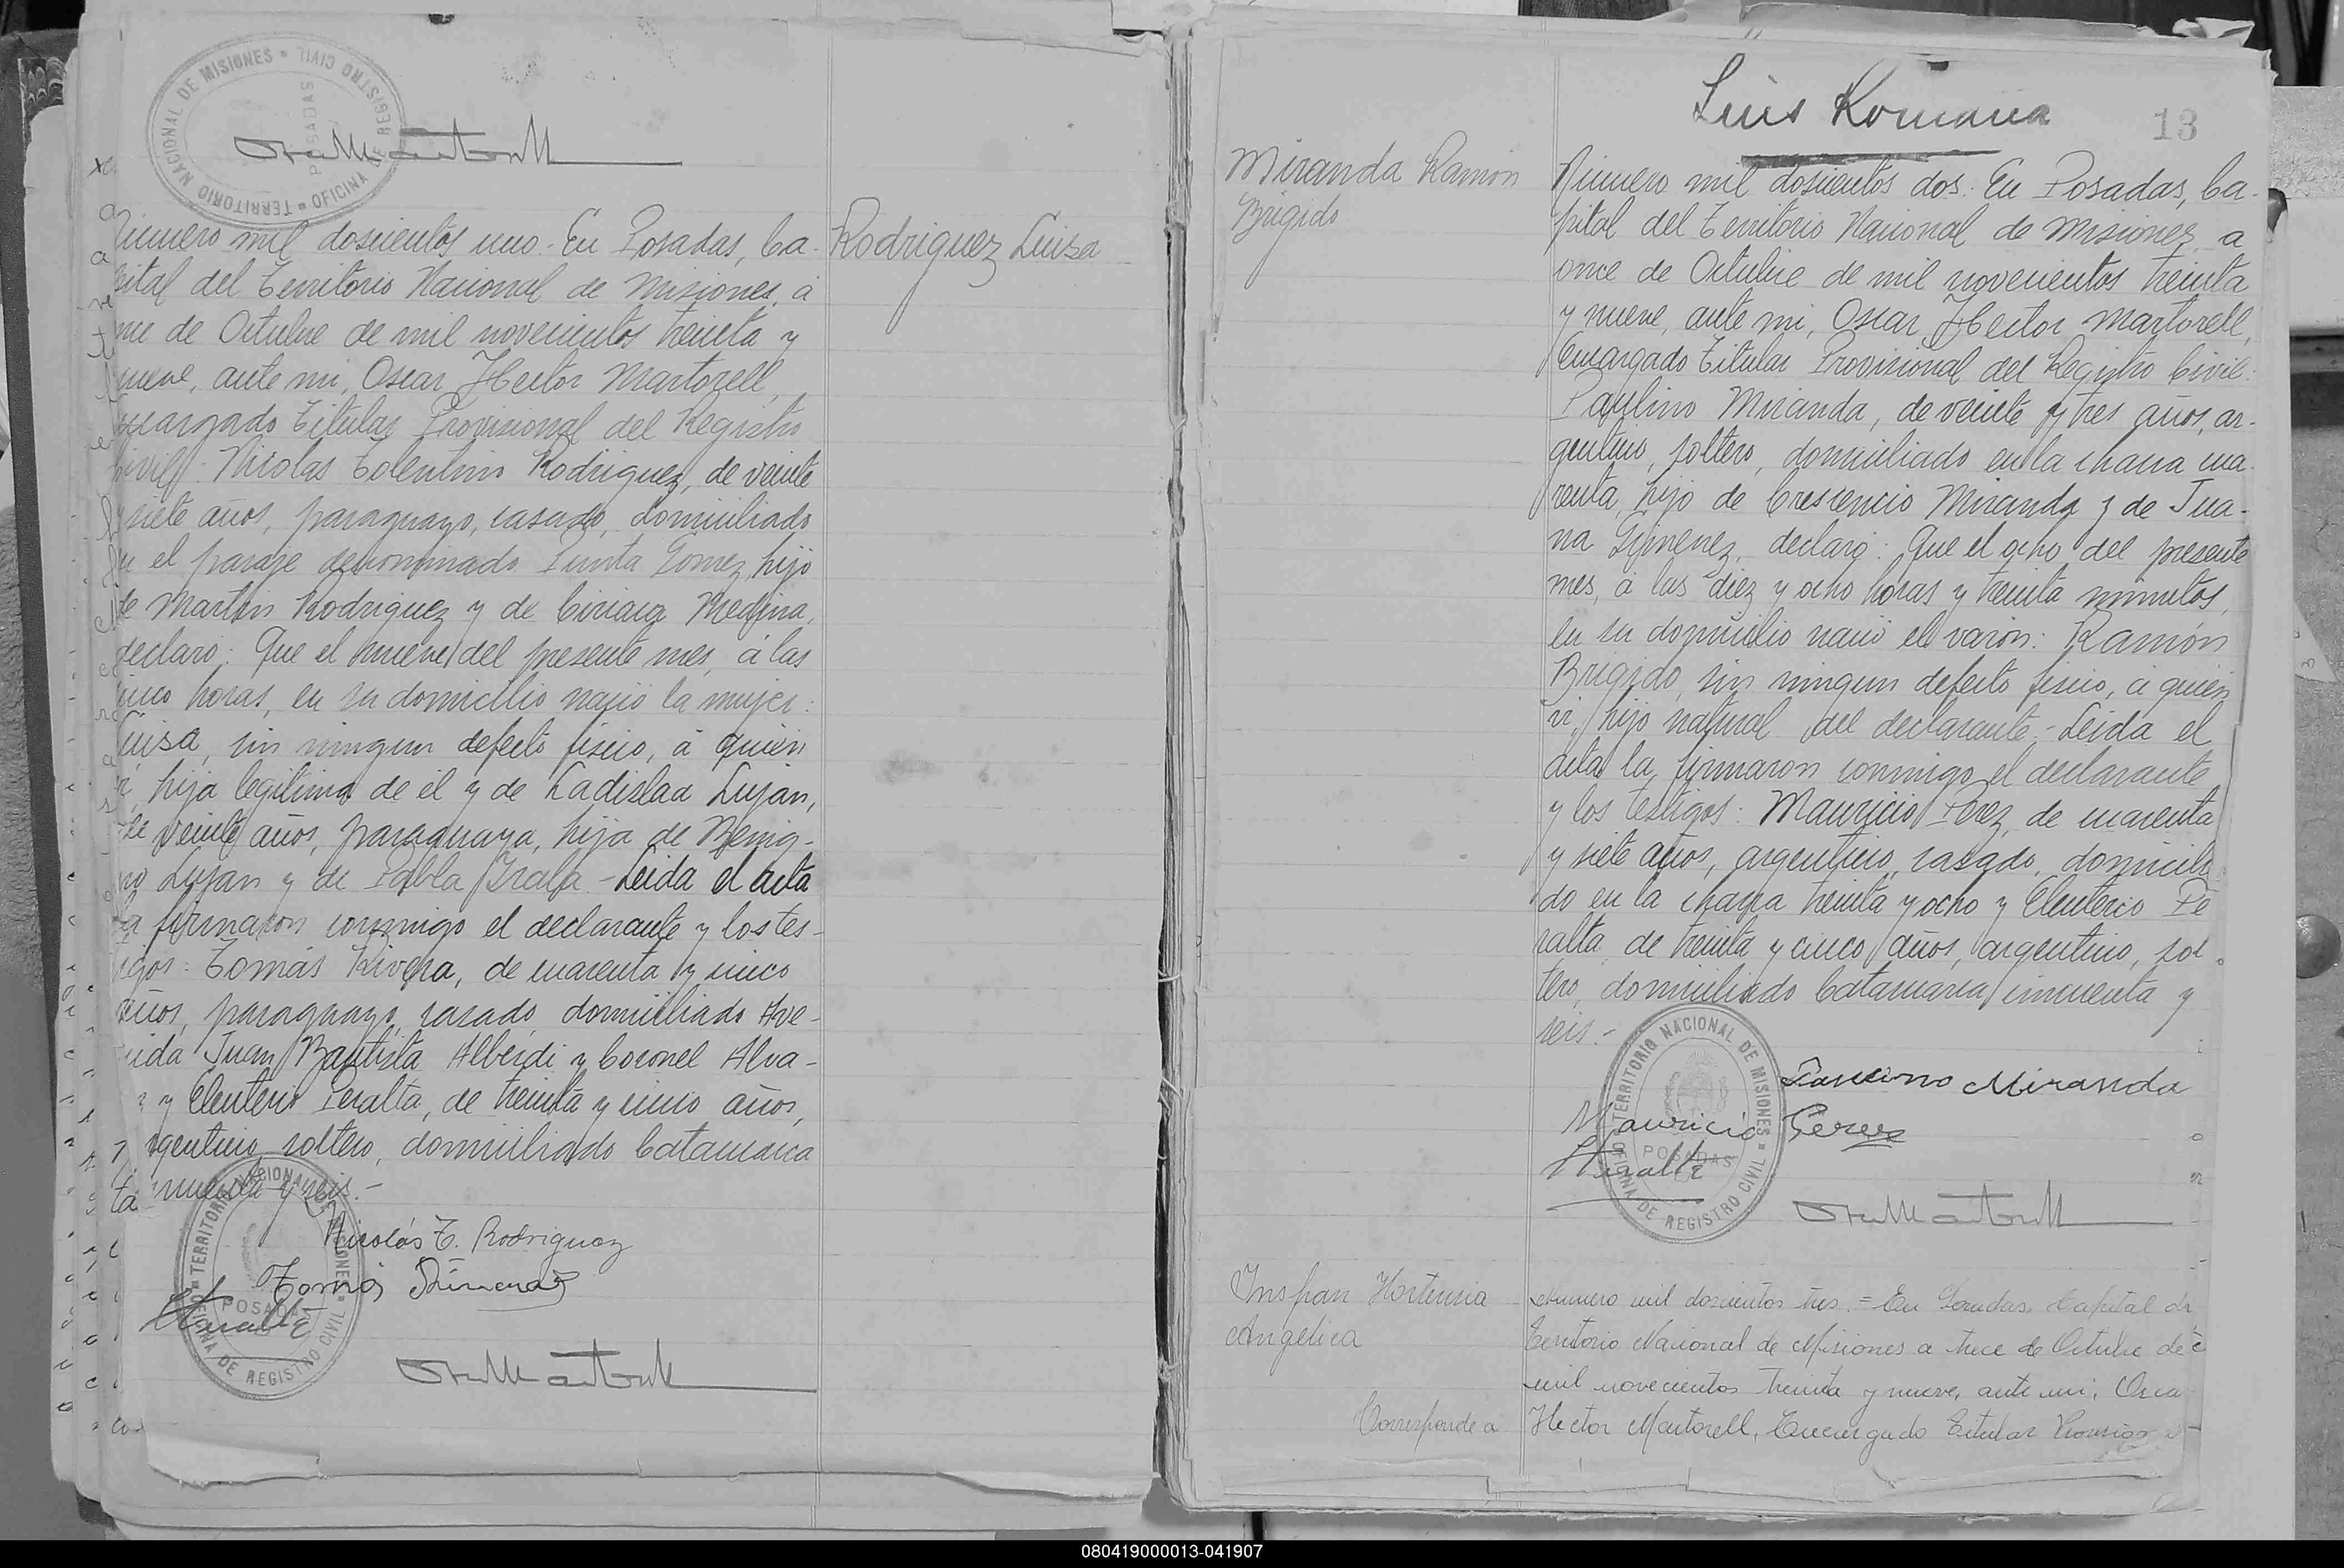 TERRITORIO NACIONAL DE MISIONES = OFICINA DE REGISTRO CIVIL
POSADAS
Rodriguez Luisa
Número mil doscientos uno. En Posadas, Ca-
pital del Territorio Nacional de Misiones, á
once de Octubre de mil novecientos treinta y
nueve, ante mi, Oscar Hector Martorell,
Encargado Titular Provisional del Registro
Civil: Nicolas Tolentino Rodriguez, de veinte
y siete años, paraguayo, casado, domiciliado
en el paraje denominado Punta Gomez, hijo
de Martin Rodriguez y de Ciriaca Medina,
declaró: Que el nueve del presente mes, á las
cinco horas, en su domicilio nació la mujer:
Luisa, sin ningun defecto fisico, á quien
vi, hija legitima de él y de Ladislaa Lujan,
de veinte años, paraguaya, hija de Benig-
no Lujan y de Pabla Irala - Leida el acta
la firmaron conmigo el declarante y los tes-
tigos: Tomás Rivera, de cuarenta y cinco
años, paraguayo, casado, domiciliado Ave-
nida Juan Bautista Alberdi y Coronel Alva-
y Eleuterio Peralta, de treinta y cinco años,
argentino, soltero, domiciliado Catamarca
cincuenta y seis.-
Nicolás T. Rodriguez
Tomás
TERRITORIO NACIONAL DE MISIONES = OFICINA DE REGISTRO CIVIL
POSADAS
Luis Romana
13
Miranda Ramón
Brigido
Número mil doscientos dos: En Posadas, Ca-
pital del Territorio Nacional de Misiones, a
once de Octubre de mil novecientos treinta
y nueve, ante mi, Oscar Hector Martorell,
Encargado Titular Provisional del Registro Civil:
Paulino Miranda, de veinte y tres años, ar-
gentino, soltero, domiciliado en la chacra cua-
renta, hijo de Crescencio Miranda y de Jua-
na Gimenez, declaró: Que el ocho del presente
mes, á las diez y ocho horas y treinta minutos,
en su domicilio nació el varón: Ramón
Brigido, sin ningun defecto fisico, á quien
vi, hijo natural del declarante.- Leida el
acta la firmaron conmigo el declarante
y los testigos: Mauricio Perez, de cuarenta
y siete años, argentino, casado, domicilia
do en la chacra treinta y ocho y Eleuterio Pe
ralta, de treinta y cinco años, argentino, sol
tero, domiciliado Catamarca cincuenta y
seis.-
Paulino Miranda
Mauricio Perez
TERRITORIO NACIONAL DE MISIONES = OFICINA DE REGISTRO CIVIL
POSADAS
Hortensia
Angélica
Numero mil doscientos tres.= En Posadas, Capital del
Territorio Nacional de Misiones a trece de Octubre de
mil novecientos treinta y nueve, ante mi, Oscar
Hector Martorell, Encargado Titular
Corresponde a
080419000013-041907